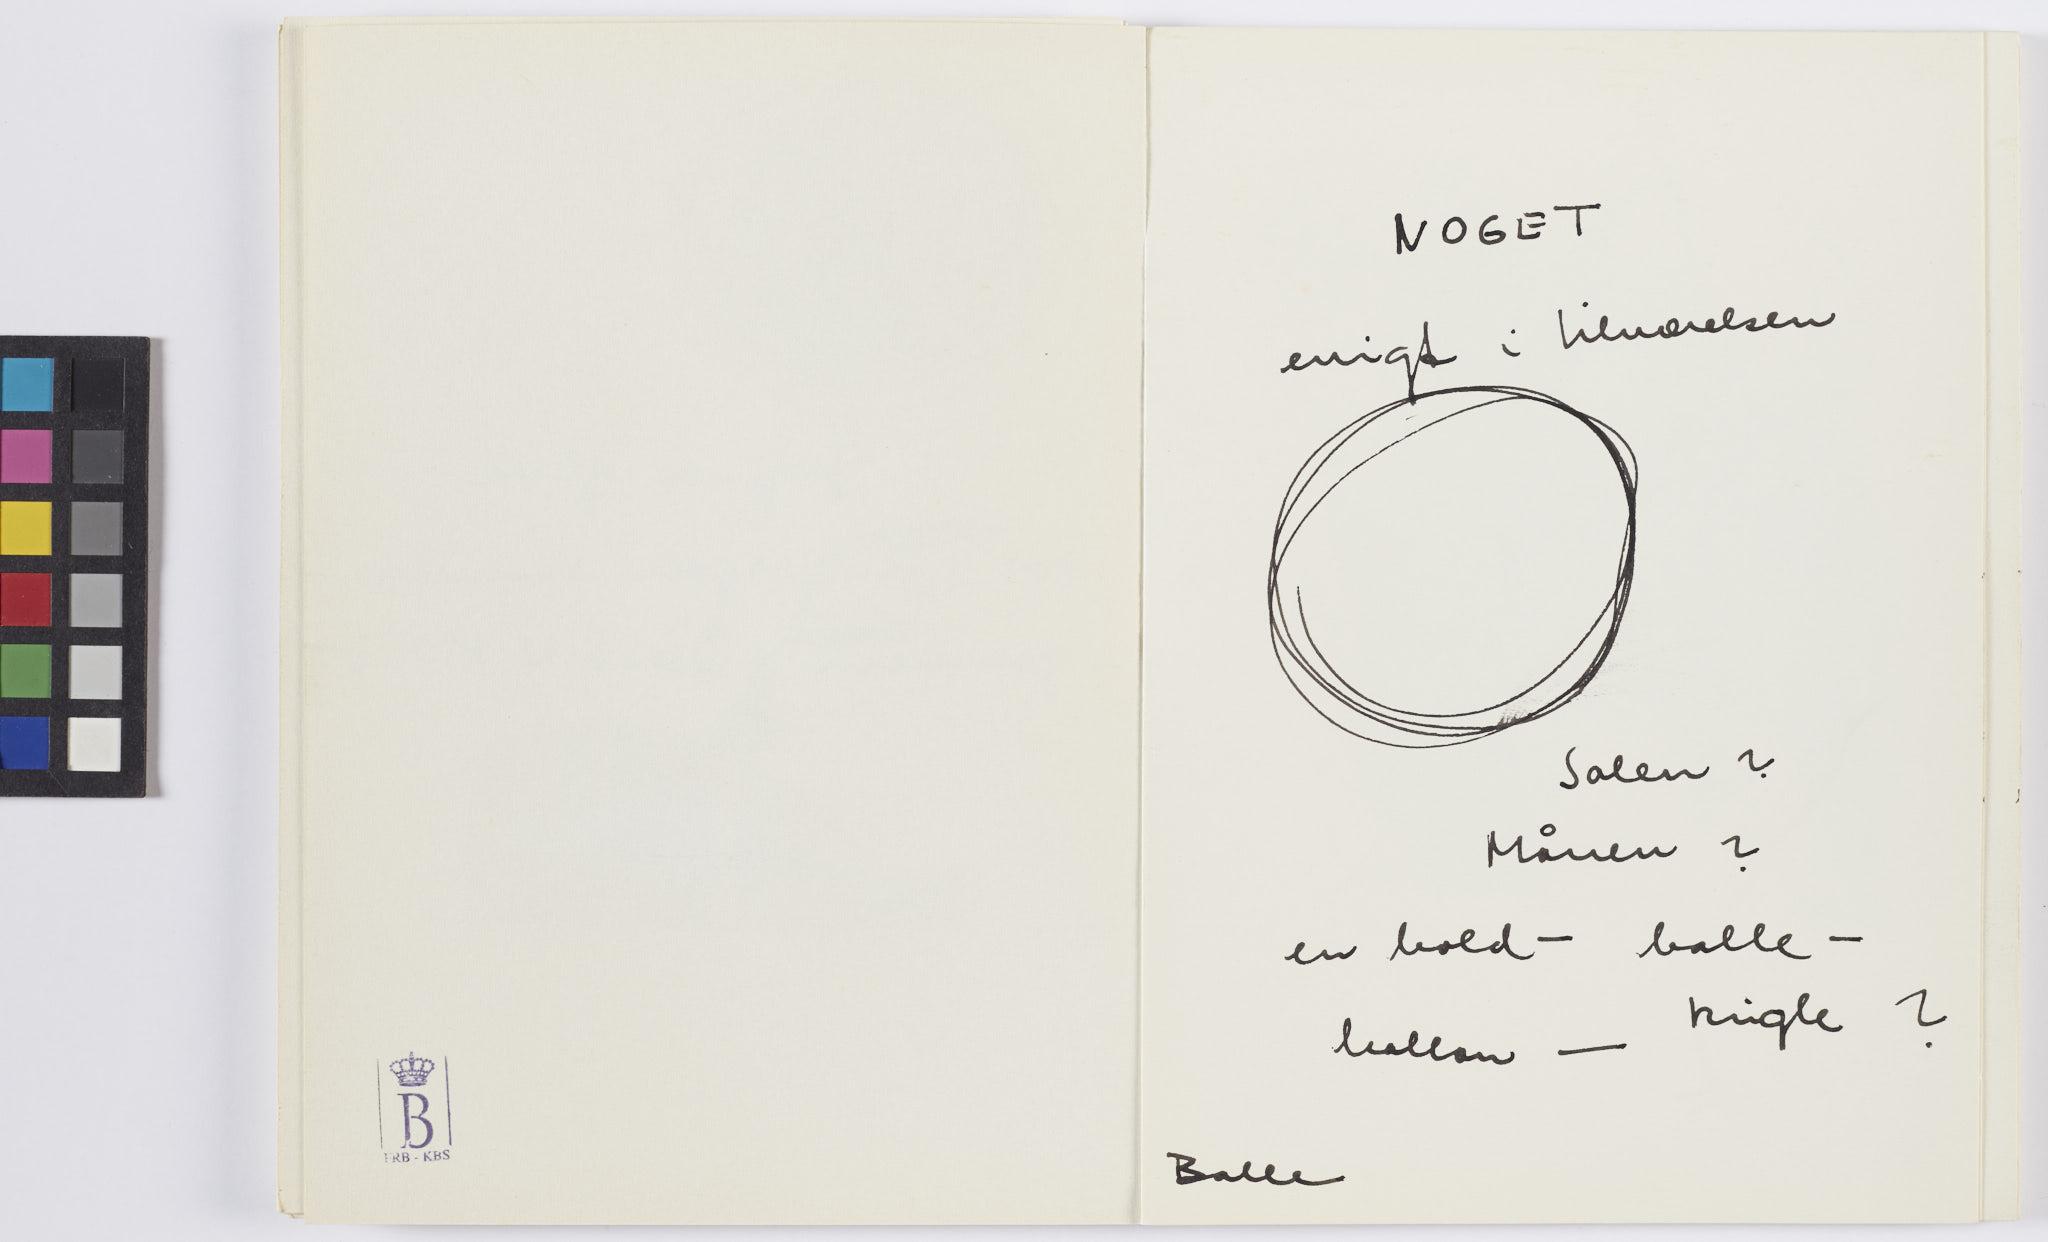 NOGET
evigt i tilværelsen
Solen ?
Månen ?
en bold – balle –
ballon — kugle ?
Balle
B
FRB - KBS